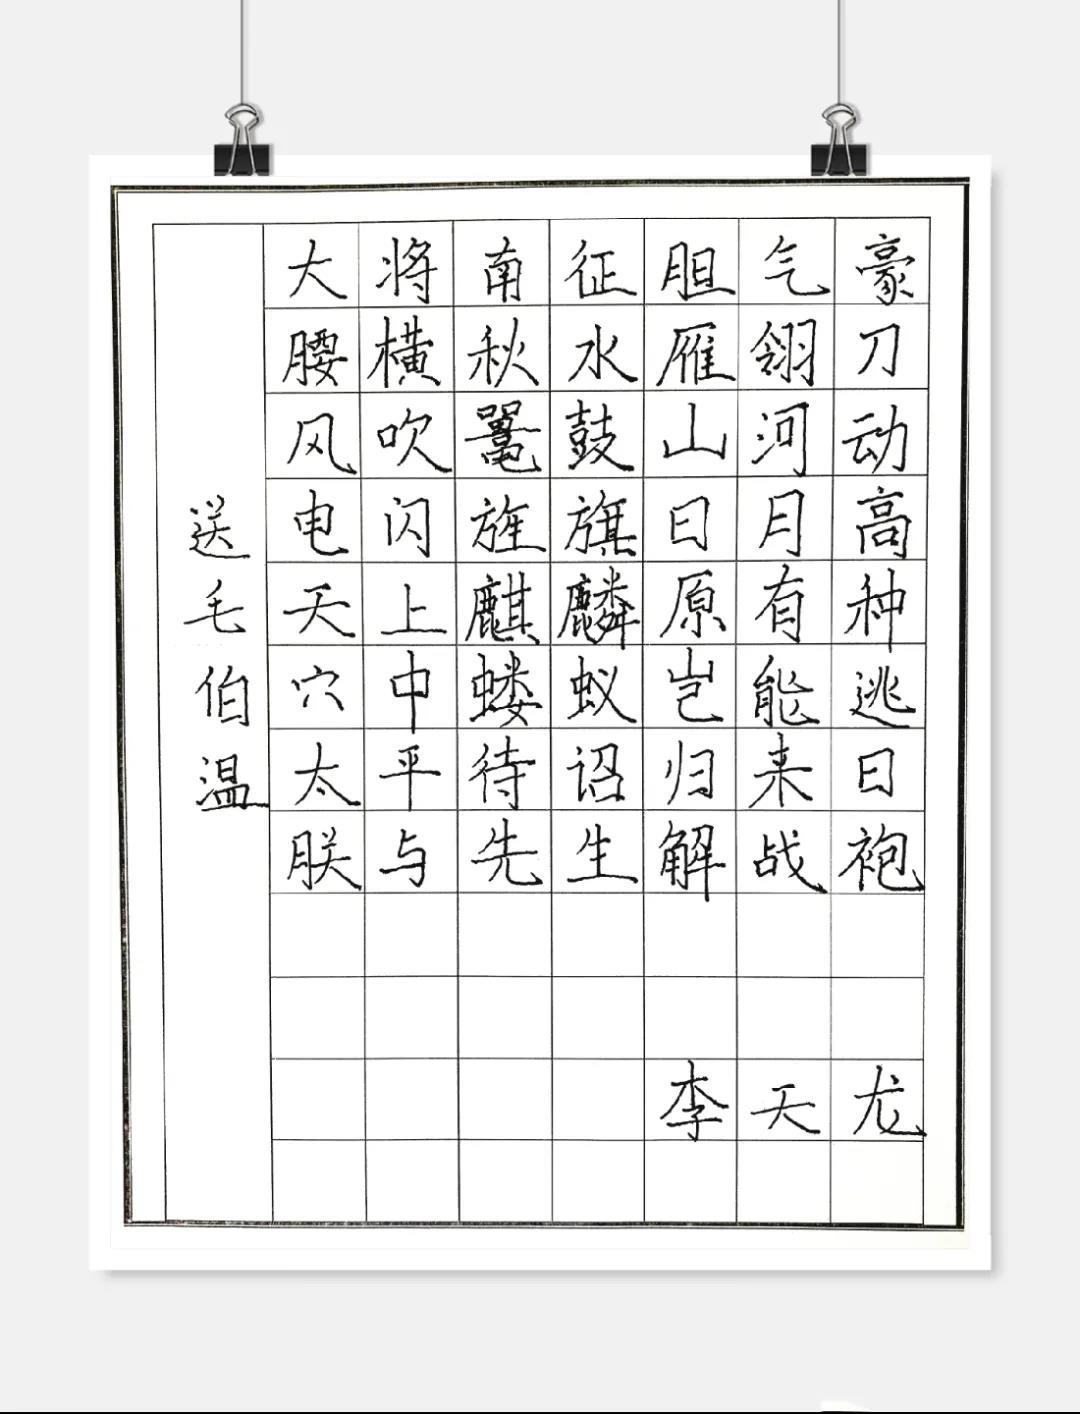 送毛伯温
大将南征胆气豪
腰横秋水雁翎刀
风吹鼍鼓山河动
电闪旌旗日月高
天上麒麟原有种
穴中蝼蚁岂能逃
太平待诏归来日
朕与先生解战袍
李天龙